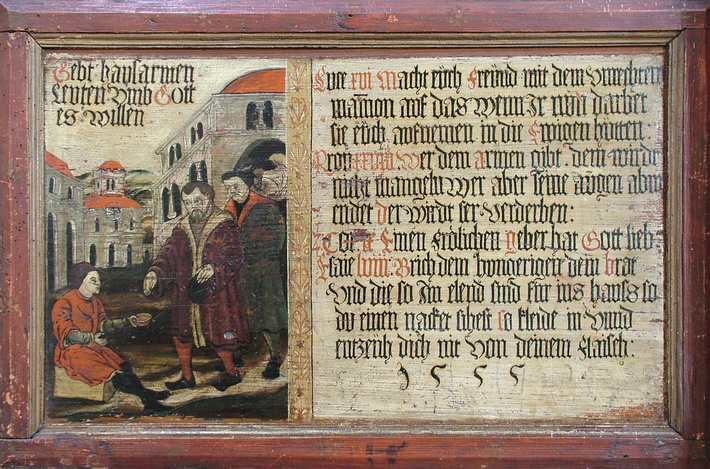 Gebt hausarmen
Leuten Vmb Gott
es Willen
Luce xvi Macht euch Freund mit dem Vnrechten
mamon auf das Wenn Ir nun darbet
sie euch aufnemen in die Ewigen hütten:
Wer dem armen gibt dem wirdt
nicht mangeln Wer aber seine augen abw
endet der Wirdt ser Verderben:
Einen Frölichen geber hat Gott lieb
lviii Brich dem hongerigen dein brot
Vnd die so Im elend sind für ins hauß so
du einen nacket sihest so kleide in Vnnd
entzeuh dich nit Von deinem Flaisch:
1555